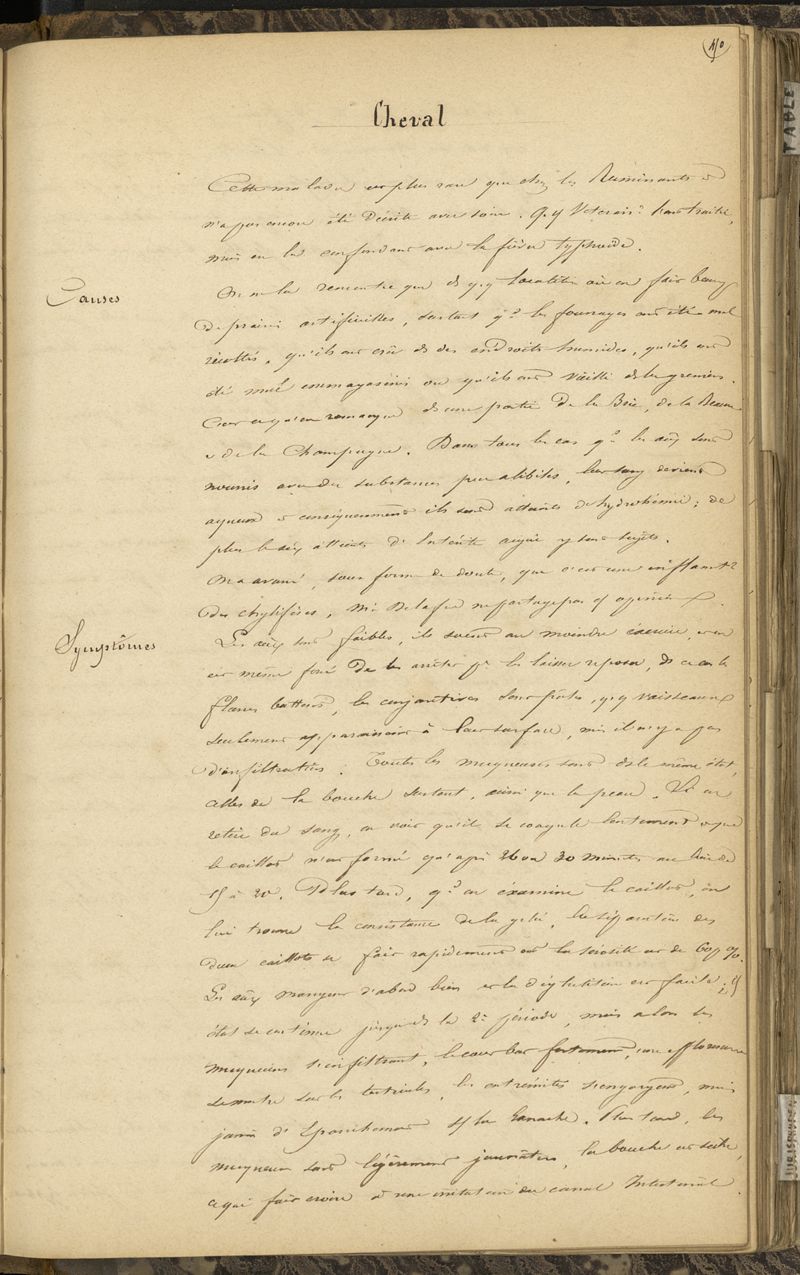 Cheval
Cette maladie est plus rare que chez les Ruminants et
n'a pas encore été décrite avec soin. qq Vétérin. l'ont traité,
mais en la confondant avec la fièvre typhoïde.
Causes
On ne la rencontre que ds qq localités où on fait beaucp
de prairies artificielles, surtout qd les fourrages ont été mal
récoltés, qu'ils ont crû ds des endroits humides, qu'ils ont
été mal emmagasinés ou qu'ils ont vieilli ds les greniers.
C'est ce qu'on remarque ds une partie De la Brie, de la Beauce
et de la Champagne. Dans tous les cas qd les aux sont
nourris avec des substances peu alibiles, leur sang devient
aqueux et conséquemment ils sont atteints de hydrohémie; de
plus les aux atteints d'entérite aiguë y sont sujets.
On a avancé, sous forme de doute, que c'est une inflammt
des chylifères, Mr Delafond ne partage pas cette opinion.
Symptômes
Les aux sont faibles, ils suent au moindre exercice, on
est même forcé De les arrêter pr les laisser reposer, ds ce cas le
flanc battent, les conjonctives sont pâles, qq vaisseaux
seulement apparaissent à leur surface, mais il n'y a pas
d'infiltration. Toutes les muqueuses sont ds le même état,
celles de la bouche surtout, ainsi que la peau. Si on
retire du sang, on voit qu'il se coagule lentement et que
le caillot n'est formé qu'après 26 ou 30 minutes au lieu de
15 à 20. Plus tard, qd on examine le caillot, on
lui trouve la consistance de la gelée, la séparation des
deux caillots se fait rapidement et la sérosité est de 60 %.
Les aux mangent d'abord bien et la déglutition est facile; cet
état se continue jusque ds la 2e période, mais alors les
muqueuses s'infiltrent, le cœur bat fortement, une
se montre sur les testicules, les extrémités s'engorgent, mais
jamais d' s/s la Ganache. Plus tard, les
muqueuses sont légèrement jaunâtres, la bouche est sèche,
ce qui fait croire à une irritation du canal Intestinal.
TABLE
JURISPRUDEN